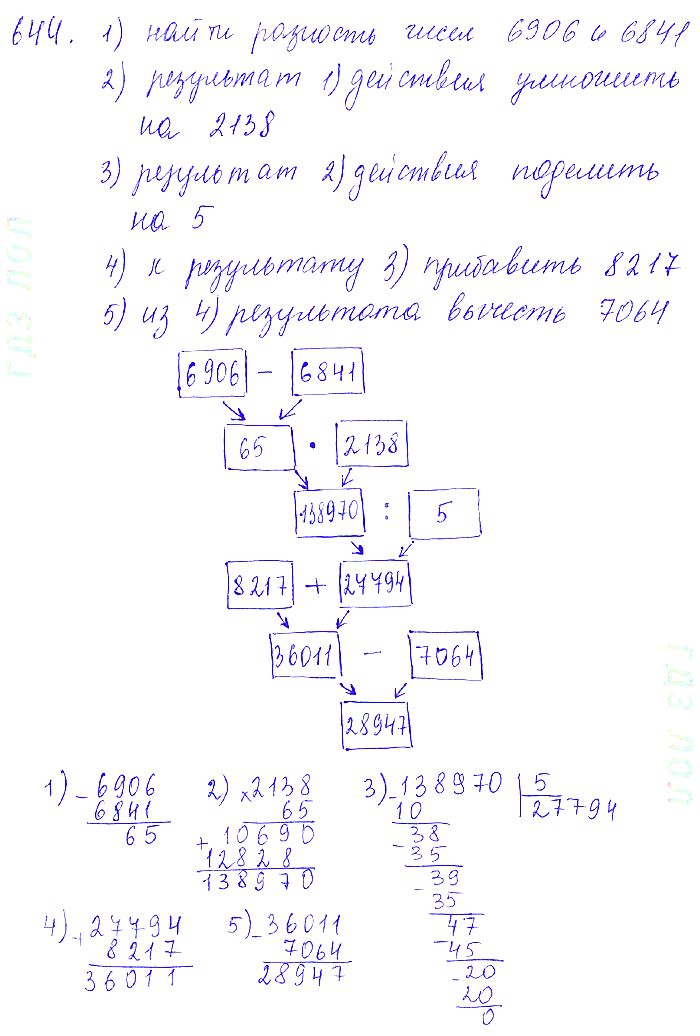 644. 1) найти разность чисел 6906 и 6841
2) результат 1) действия умножить
на 2138
3) результат 2) действия поделить
на 5
4) к результату 3) прибавить 8217
5) из 4) результата вычесть 7064
6906 - 6841
65 · 2138
138970 : 5
8217 + 27794
36011 - 7064
28947
1) - 6906
6841
65
2) × 2138
65
+ 10690
12828
138970
3) - 138970 | 5
10 27794
38
- 35
39
- 35
47
- 45
20
- 20
0
4) + 27794
8217
36011
5) - 36011
7064
28947
гдз лол
гдз лол